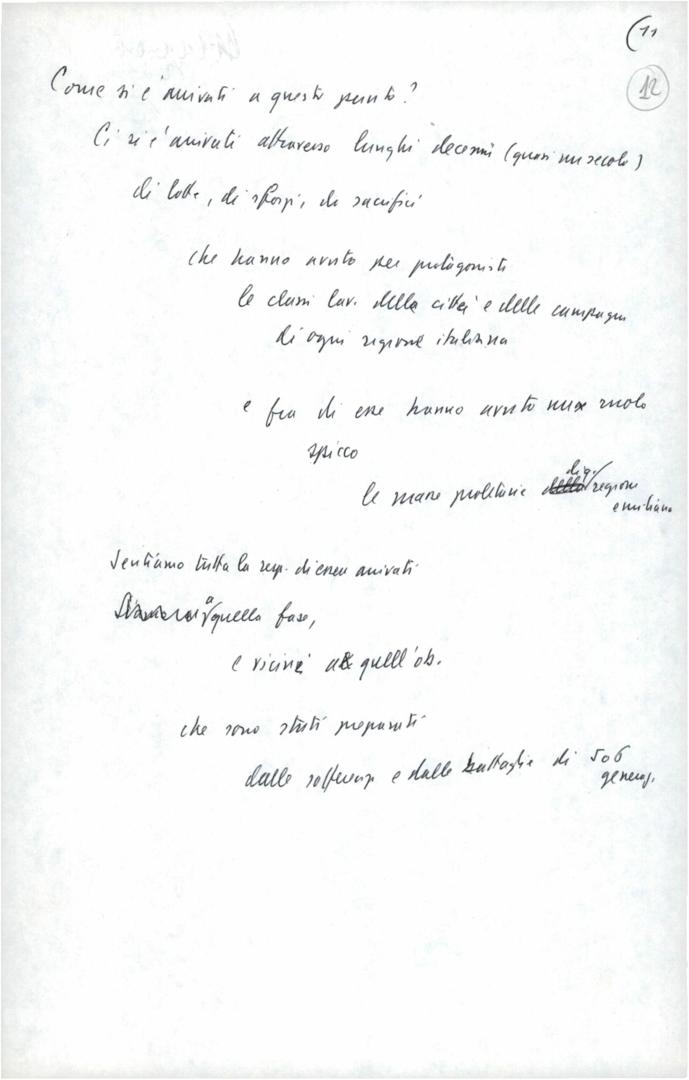 (11
12
Come si è arrivati a questo punto?
Ci si è arrivati attraverso lunghi decenni (quasi un secolo)
di lotte, di sforzi, di sacrifici
che hanno avuto per protagonisti
le classi lav. della città e delle campagne
di ogni regione italiana
e fra di esse hanno avuto un ruolo
spicco
le masse proletarie regione
emiliana
Sentiamo tutta la resp. di essere arrivati
a quella fase,
e vicini a quell'ob.
che sono stati preparati
dalle sofferenze e dalle battaglie di 5 o 6
generaz.